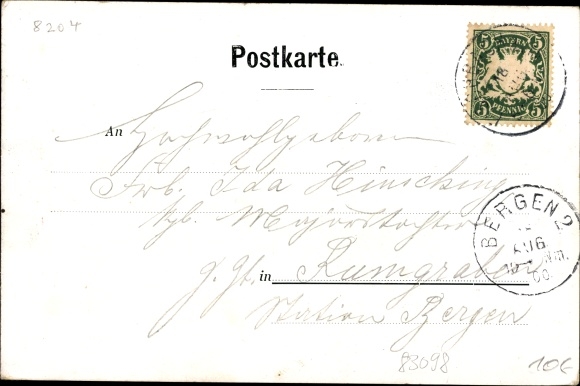 8204
Postkarte.
5 BAYERN 5
5 PFENNIG 5
An Hochwohlgeboren
Frl. Ida Heinsching
kgl. Majorstochter
z. Zt. in Rumgraben
Station Bergen
BERGEN 2
AUG
Nm.
00
83098
10€